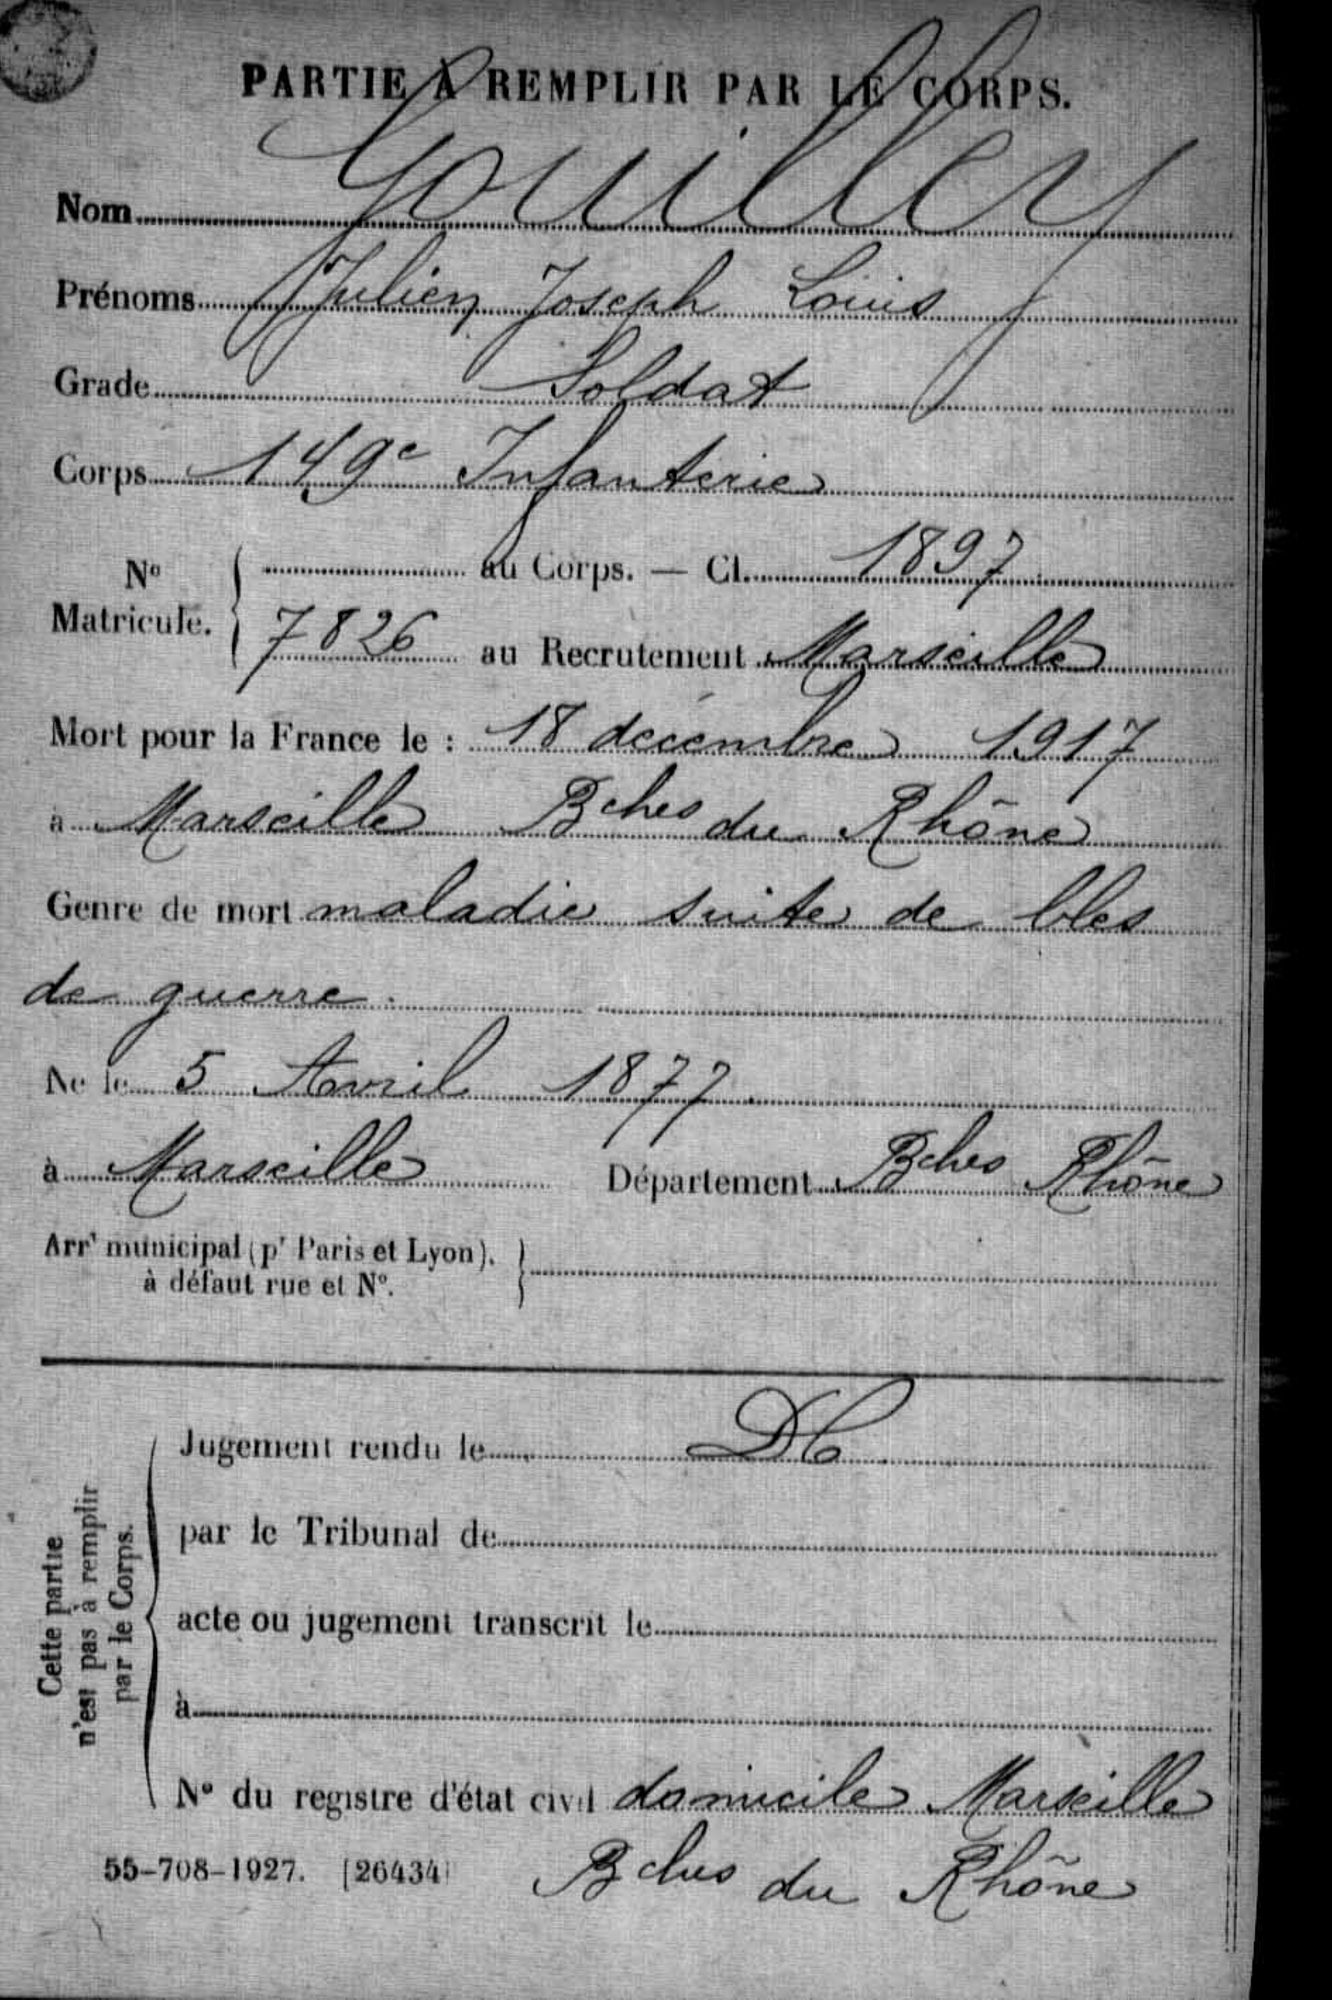 PARTIE À REMPLIR PAR LE CORPS.
Nom Gouilley
Prénoms Julien Joseph Louis
Grade Soldat
Corps 149e Infanterie
No Matricule. { au Corps. — Cl. 1897
7826 au Recrutement Marseille
Mort pour la France le : 18 décembre 1917
à Marseille Bches du Rhône
Genre de mort maladie suite de bles
de guerre.
Né le 5 Avril 1877
à Marseille Département Bches Rhône
Arrt municipal (pr Paris et Lyon), }
à défaut rue et No.
Cette partie
n'est pas à remplir
par le Corps.
Jugement rendu le DC
par le Tribunal de
acte ou jugement transcrit le
à
No du registre d'état civil domicile Marseille
55-708-1927. [26434] Bches du Rhône